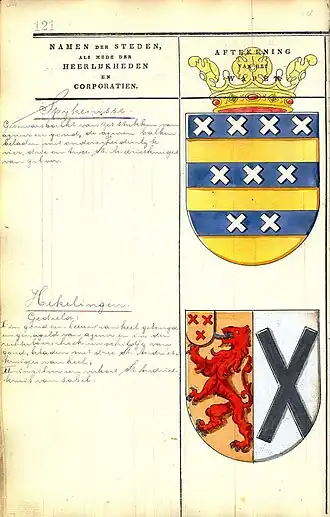 121
NAMEN DER STEDEN,
ALS MEDE DER
HEERLIJKHEDEN
EN
CORPORATIEN.
AFTEKENING
VAN HET
WAPEN
Spijkenisse.
van zes stukken van
azuur en goud, de azuren balken
beladen met onderscheidenlijk
vier, drie en twee St. Andrieskruisjes
van zilver.
Hekelingen.
Gedeeld:
I in goud een leeuw van keel getongd
en genageld van azuur en in den
goud, beladen met drie St. Andries-
kruisjes van keel;
II in zilver een St. Andries-
kruis van sabel.